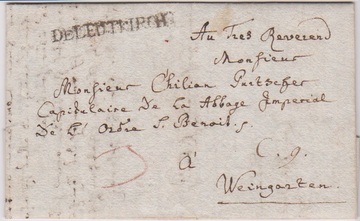 DE LEUTKIRCH
Au Tres Reverend
Monsieur
Monsieur Chilian
Capitulaire De La Abbaÿe Imperial
De L' Ordre S. Benoit.
à
Weingarten.